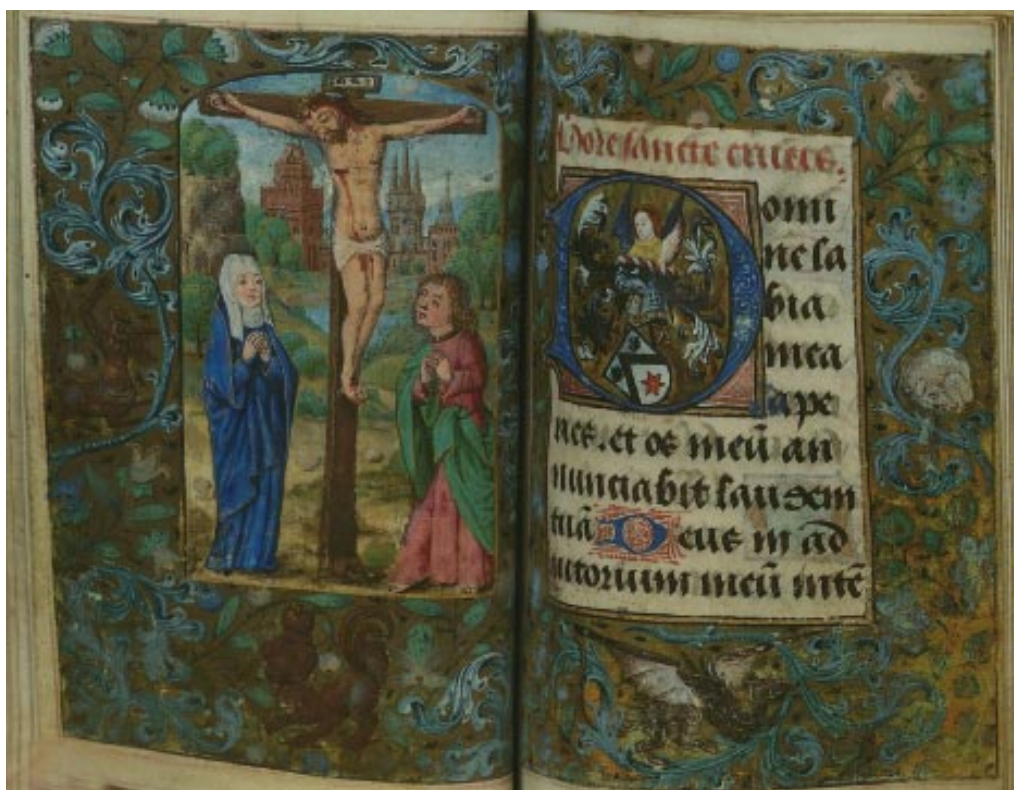 INRI
hore sancte crucis.
Domi
ne la
bia
mea
ape
ries. et os meū an
nunciabit laudem
tuā Deus in ad
iutorium meū intē